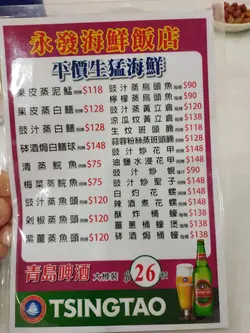 永發海鮮飯店
平價生猛海鮮
果皮蒸泥鯭 $118
果皮蒸白鱔 $128
豉汁蒸白鱔 $128
砵酒焗白鱔球 $148
清蒸鯇魚 $75
梅菜蒸鯇魚 $75
豉汁蒸魚頭 $120
剁椒蒸魚頭 $120
紫薑蒸魚頭 $120
豉汁蒸烏頭魚 $90
檸檬蒸烏頭魚 $90
豉汁蒸黃立鯧 $120
涼瓜炆黃立鯧 $138
生炆班頭腩 $128
蒜蓉粉絲蒸班頭腩 $128
豉汁炒花甲 $138
油鹽水浸花甲 $148
豉汁炒蜆 $90
豉汁炒聖子 $148
白灼花螺 $138
辣酒煮花螺 $148
酥炸桶蠔 $138
薑蔥焗桶蠔 $138
砵酒焗桶蠔 $148
青島啤酒 大樽裝 $26/支
TSINGTAO